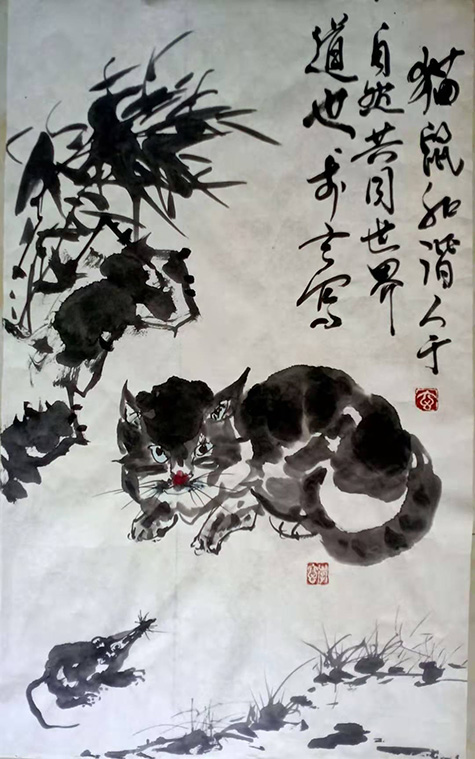 猫鼠和谐人于
自然共同世界
道也写